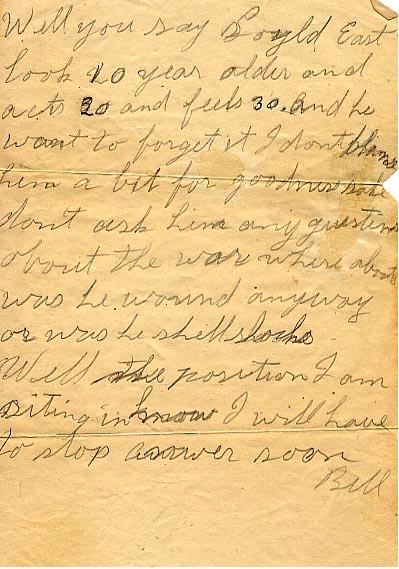 Well you say Boyld East
look 20 year older and
acts 20 and feels 30. And he
want to forget it I dont blame
him a bit for goodness sake
dont ask him any questions
about the war where abouts
was he wound anyway
or was he shell shocks
Well the position I am
siting in know I will have
to stop answer soon
Bill